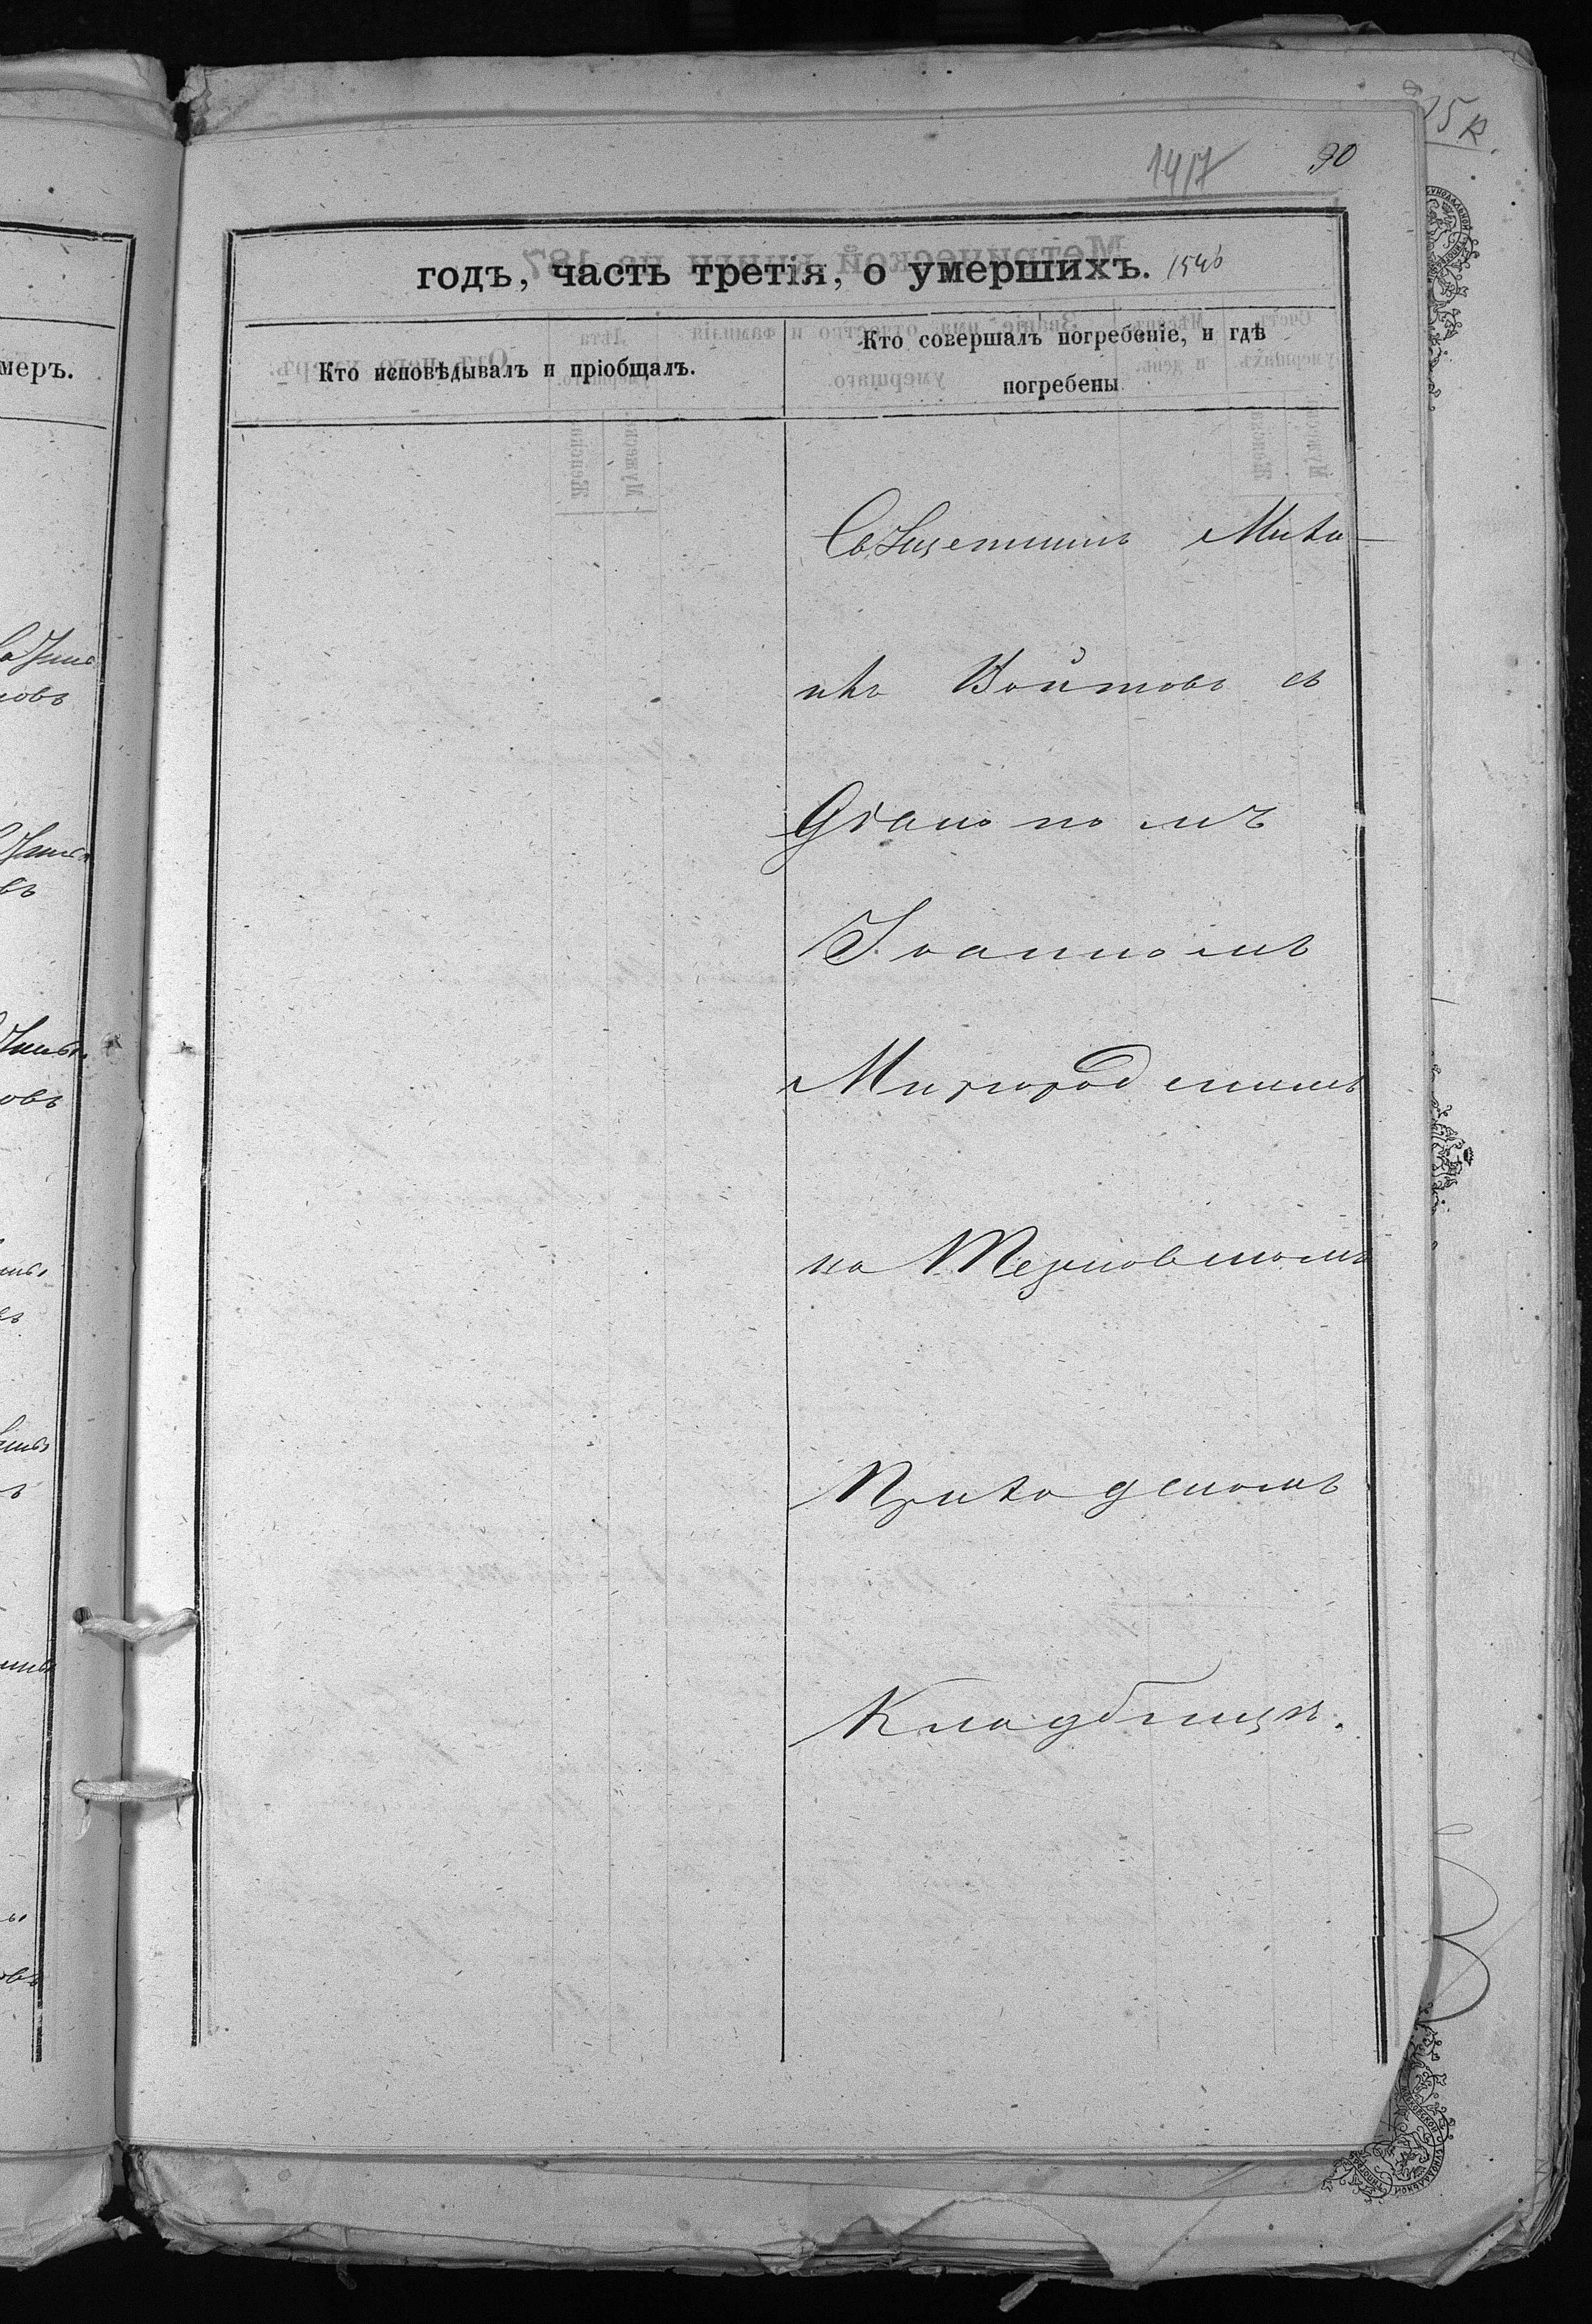 1417
90
годъ, часть третія, о умершихъ. 1546
меръ.
Кто исповѣдывалъ и пріобщалъ.
Кто совершалъ погребеніе, и гдѣ
погребены
Священникъ Миха-
илъ Войтовъ съ
Діакономъ
Іоанномъ
Миргородскимъ
на Терновскомъ
Приходскомъ
Кладбищѣ.